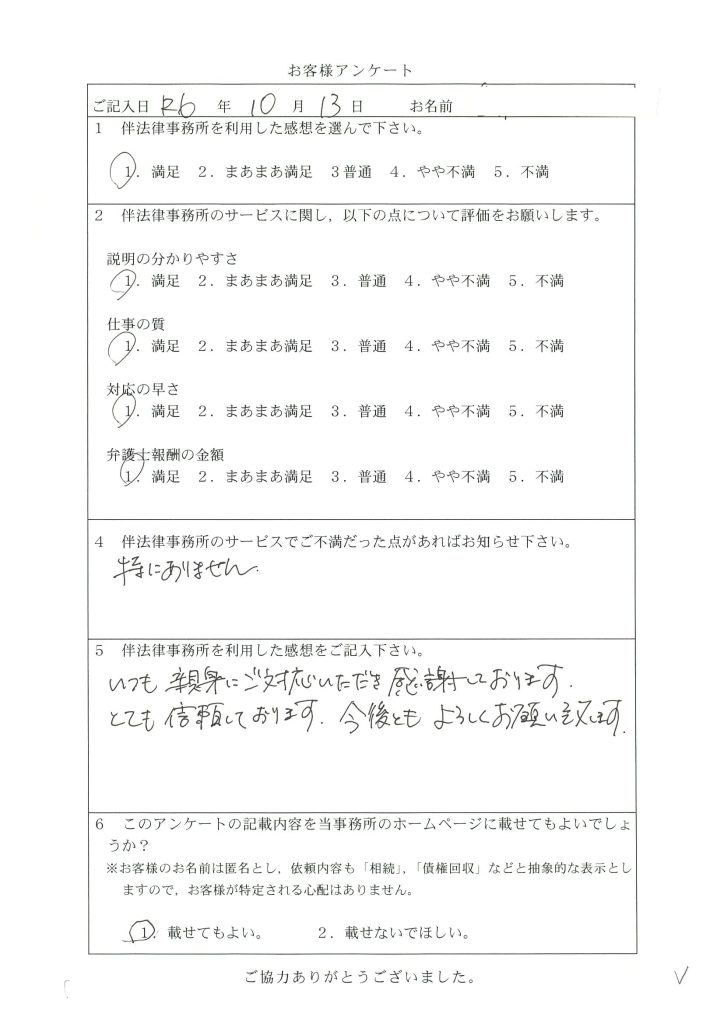 お客様アンケート
ご記入日 R6 年 10 月 13 日 お名前
1 伴法律事務所を利用した感想を選んで下さい。
1. 満足 2. まあまあ満足 3普通 4. やや不満 5. 不満
2 伴法律事務所のサービスに関し,以下の点について評価をお願いします。
説明の分かりやすさ
1. 満足 2. まあまあ満足 3. 普通 4. やや不満 5. 不満
仕事の質
1. 満足 2. まあまあ満足 3. 普通 4. やや不満 5. 不満
対応の早さ
1. 満足 2. まあまあ満足 3. 普通 4. やや不満 5. 不満
弁護士報酬の金額
1. 満足 2. まあまあ満足 3. 普通 4. やや不満 5. 不満
4 伴法律事務所のサービスでご不満だった点があればお知らせ下さい。
特にありません.
5 伴法律事務所を利用した感想をご記入下さい。
いつも親身にご対応いただき感謝しております.
とても信頼しております. 今後ともよろしくお願い致します.
6 このアンケートの記載内容を当事務所のホームページに載せてもよいでしょ
うか?
※お客様のお名前は匿名とし,依頼内容も「相続」,「債権回収」などと抽象的な表示とし
ますので,お客様が特定される心配はありません。
1. 載せてもよい。 2. 載せないでほしい。
ご協力ありがとうございました。